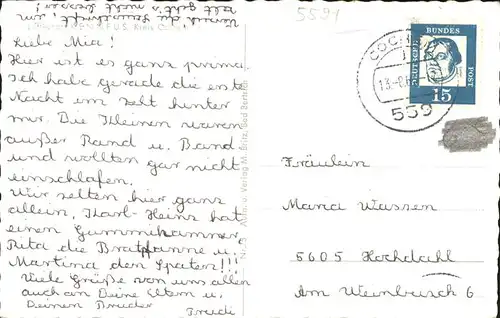 Liebe Mia!
Hier ist es ganz prima.
Ich habe gerade die erste
Nacht im Zelt hinter
mir. Die Kleinen waren
außer Rand u. Band
und wollten gar nicht
einschlafen.
Wir zelten hier ganz
allein, Karl-Heinz hat
einen Gummihammer
Rita die Bratpfanne u.
Martina den Spaten!!!
Viele Grüße von uns allen
auch an Deine Eltern u.
Deinen Bruder
Trudi
5591
COCHEM
13.-8.6
559
DEUTSCHE BUNDESPOST
15
Fräulein
Maria Wassen
5605 Hochdahl
Am Weinbusch 6